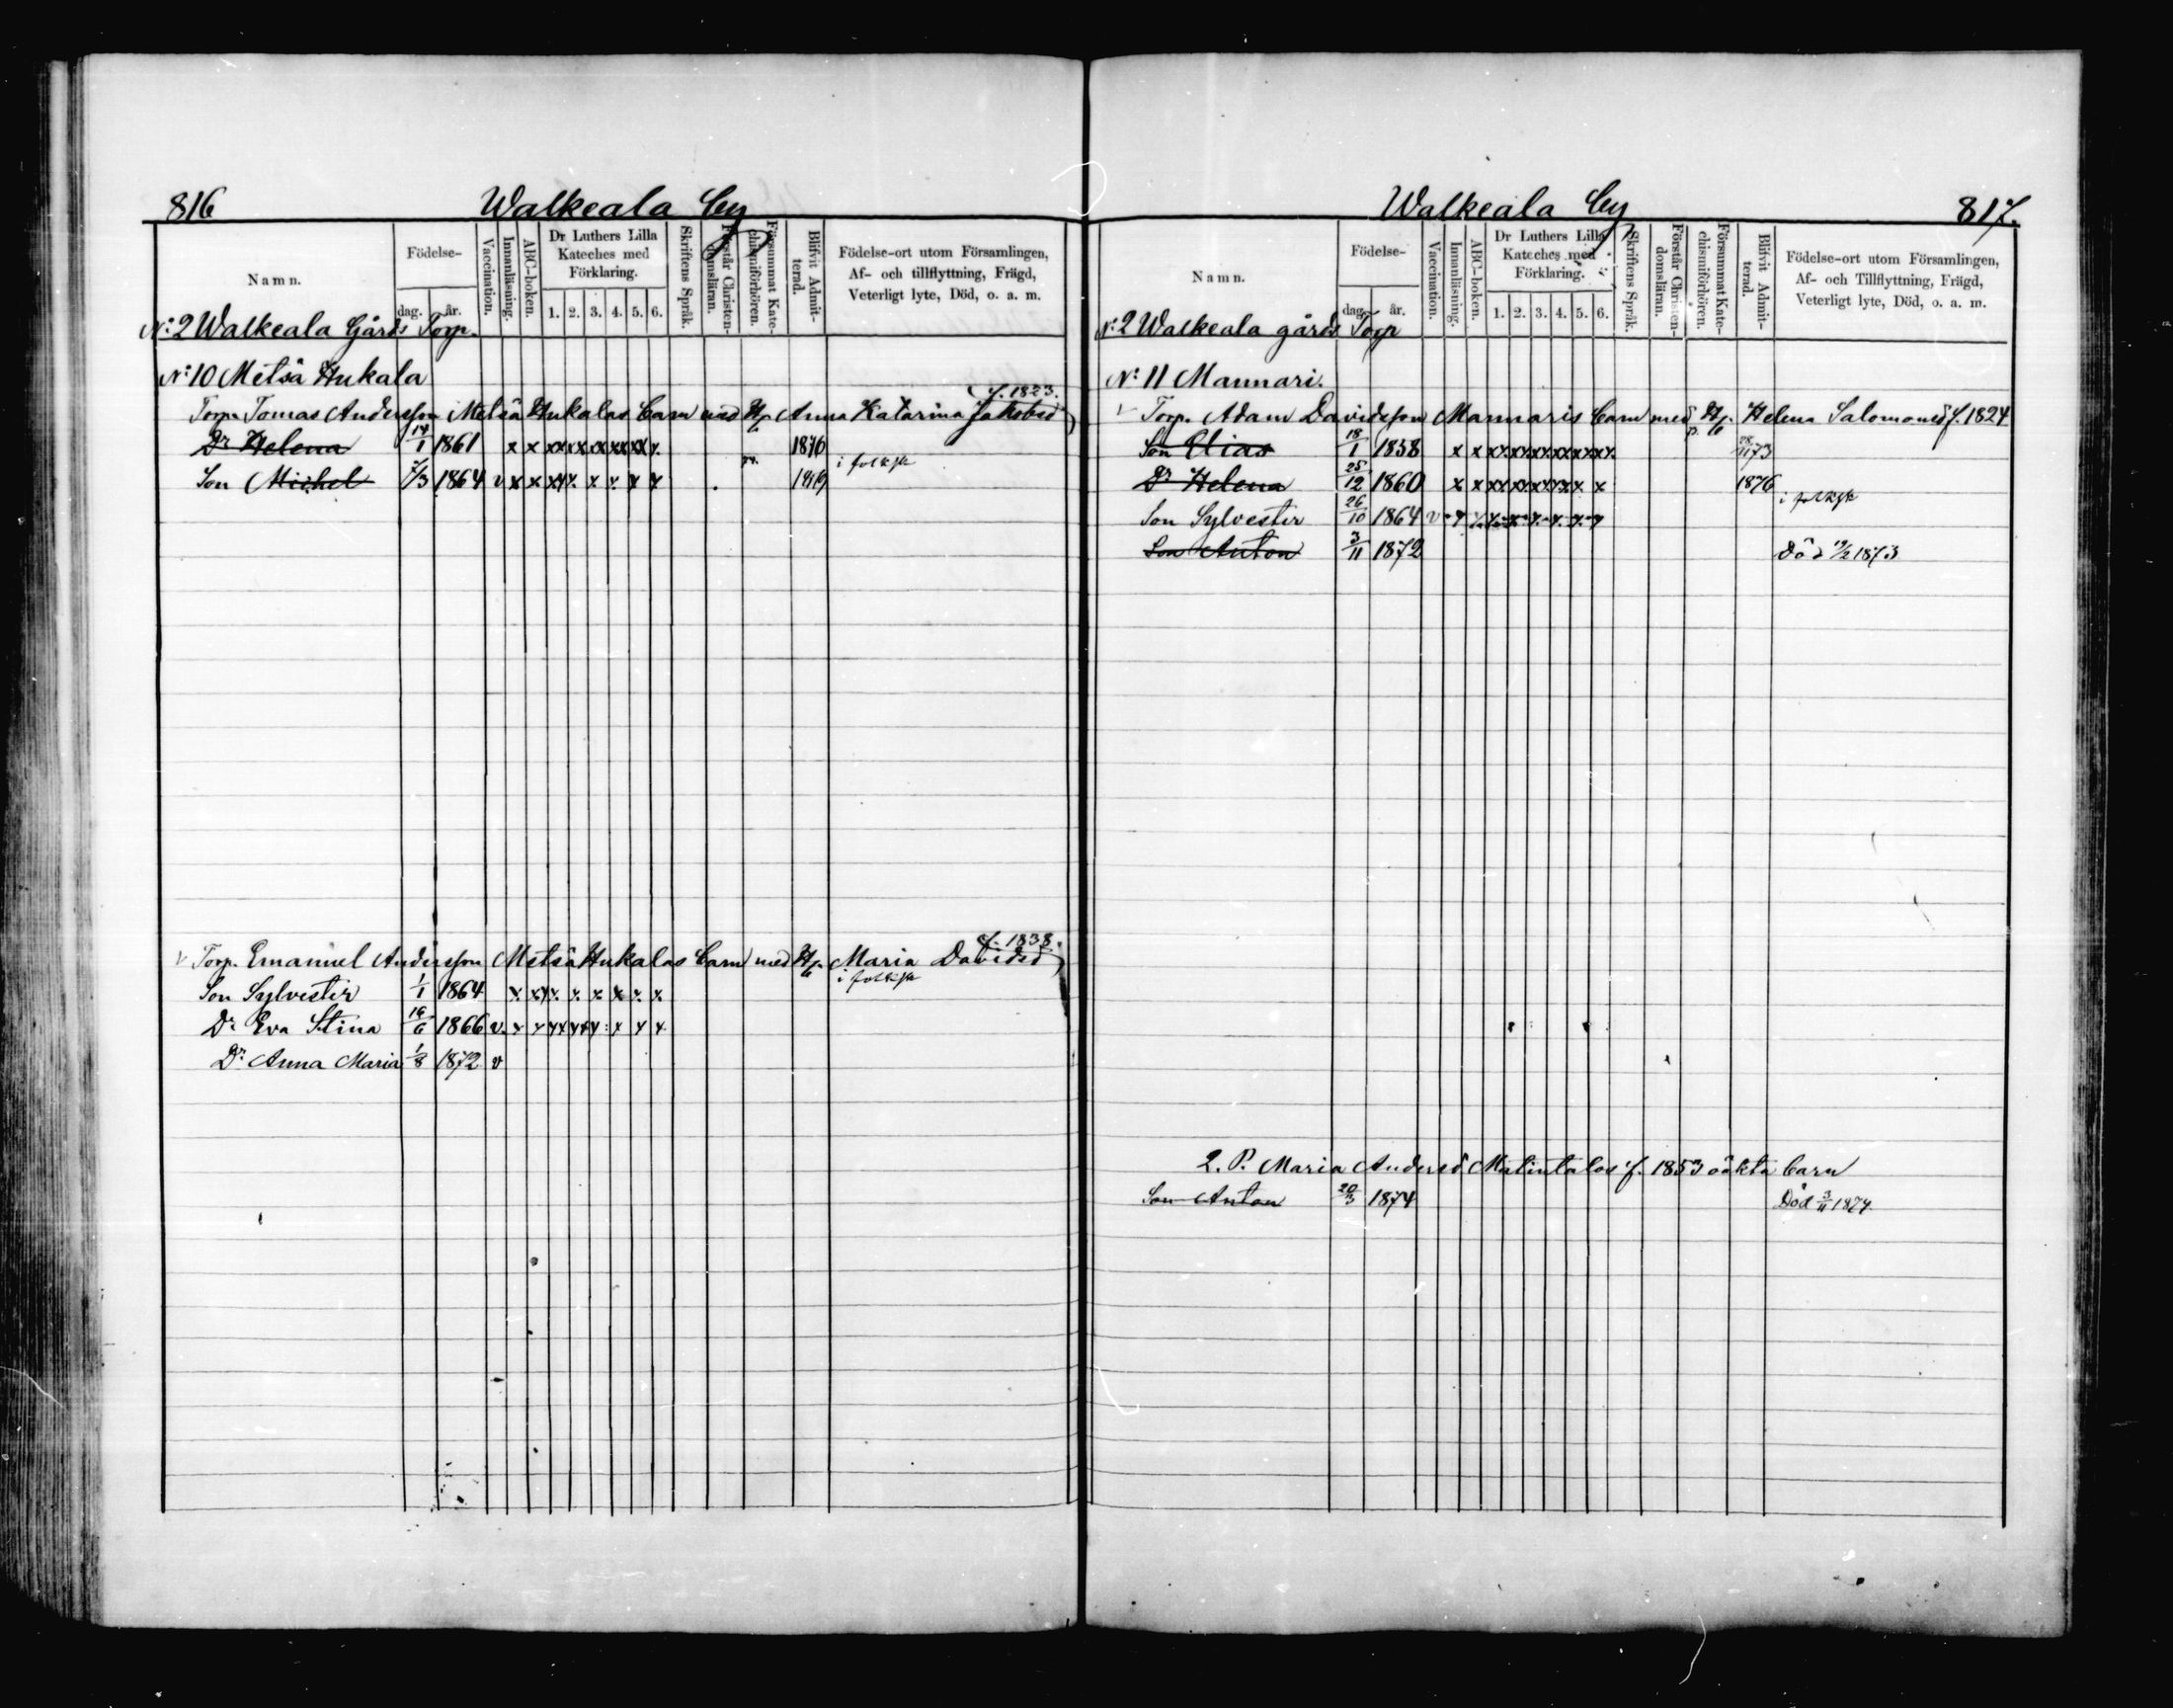 816
Walkeala by
Namn.
Födelse-
dag. år.
Vaccination.
Innanläsning.
ABC-boken.
Dr Luthers Lilla Kateches med Förklaring.
1. 2. 3. 4. 5. 6.
Skriftens Språk.
Förstår Christendomsläran.
Försummat Katechismiförhören.
Blifvit Admitterad.
Födelse-ort utom Församlingen,
Af- och tillflyttning, Frägd,
Veterligt lyte, Död, o. a. m.
N:2 Walkeala Gårds Torp.
N:10 Metsä Hukala
f. 1823.
Torp. Tomas Andersson Metsä Hukalas barn med H Anna Katarina Jakobsd
Dr Helena 14/1 1861 x x xx xx xx xx xx x 1876
Son Michel 1864 v x x xx x x x x i folksk
v Torp. Emanuel Andersson Metsä Hukalas barn med H Maria Davidsd f. 1838.
Son Sylvester 1/1 1864 x xx x x x x x i folksk
Dr Eva Stina 16/6 1866 v x x xx xxx x x x
Dr Anna Maria 1/8 1872 v
Walkeala by
817.
Namn.
Födelse-
dag. år.
Vaccination.
Innanläsning.
ABC-boken.
Dr Luthers Lilla Kateches med Förklaring.
1. 2. 3. 4. 5. 6.
Skriftens Språk.
Förstår Christendomsläran.
Försummat Katechismiförhören.
Blifvit Admitterad.
Födelse-ort utom Församlingen,
Af- och Tillflyttning, Frägd,
Veterligt lyte, Död, o. a. m.
N:2 Walkeala gårds Torp
N:11 Mannari.
v Torp. Adam Davidsson Mannaris barn med H Helena Salomonsd f. 1824
Son Elias 18/1 1858 x x xx xx xx xx xx xx 73
Dr Helena 25/12 1860 x x xx xx xx xx x x 1876
Son Sylvester 26/10 1864 v x x x x x x x x i folksk
Son Anton 3/11 1872 Död 1873
2. P. Maria Andersd Matintalos f. 1853 oäkta barn
Son Anton 20/3 1874 Död 3/11 1874